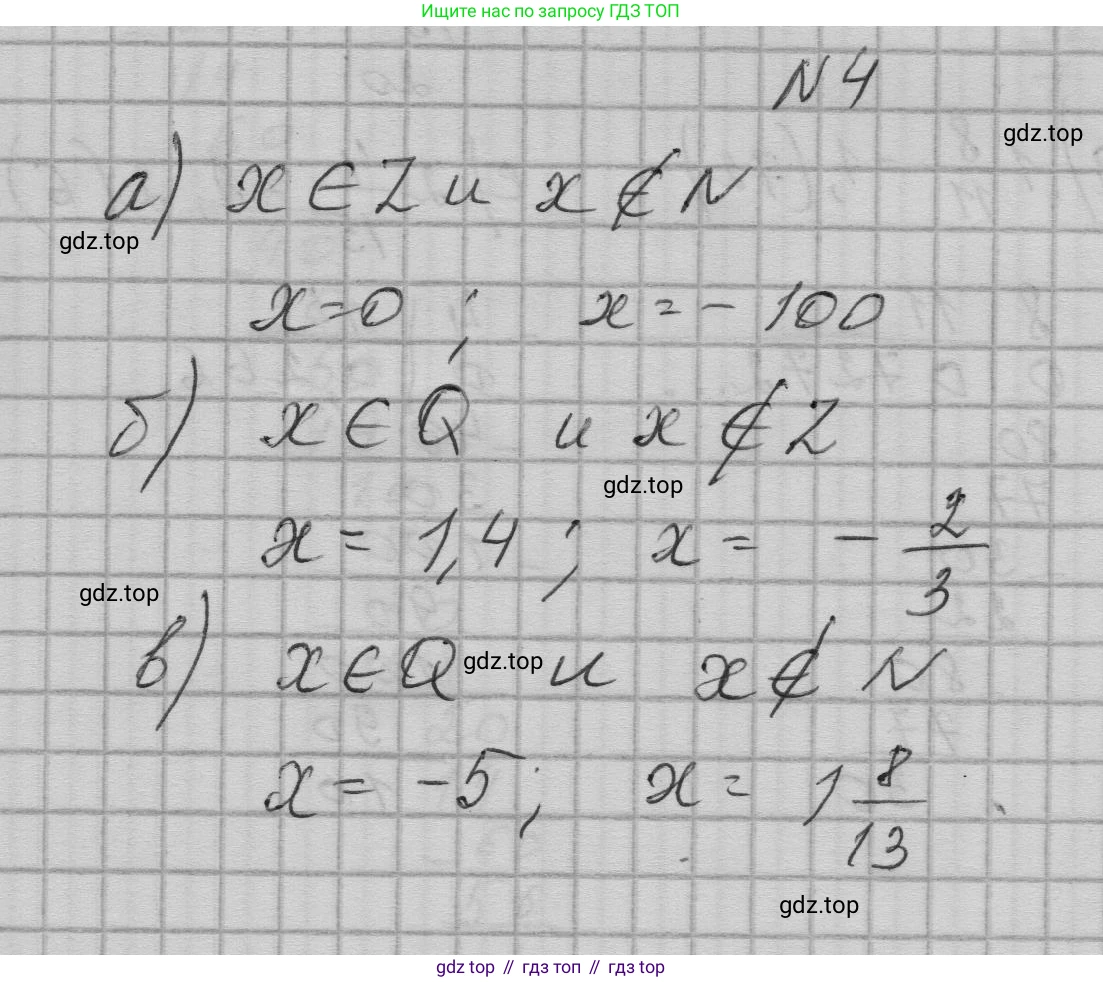 Ищите нас по запросу ГДЗ ТОП
N 4
gdz.top
а) x ∈ Z и x ∉ N
gdz.top
x = 0 ; x = - 100
б) x ∈ Q и x ∉ Z
gdz.top
x = 1,4 ; x = - 2/3
gdz.top
в) x ∈ Q и x ∉ N
gdz.top
x = -5 ; x = 1 8/13
gdz.top
gdz top // гдз топ // gdz top